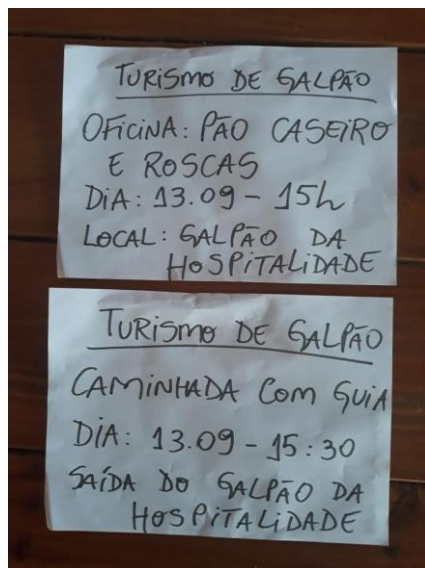 TURISMO DE GALPÃO
OFICINA: PÃO CASEIRO
E ROSCAS
DIA: 13.09 - 15h
LOCAL: GALPÃO DA
HOSPITALIDADE
TURISMO DE GALPÃO
CAMINHADA COM GUIA
DIA: 13.09 - 15:30
SAÍDA DO GALPÃO DA
HOSPITALIDADE